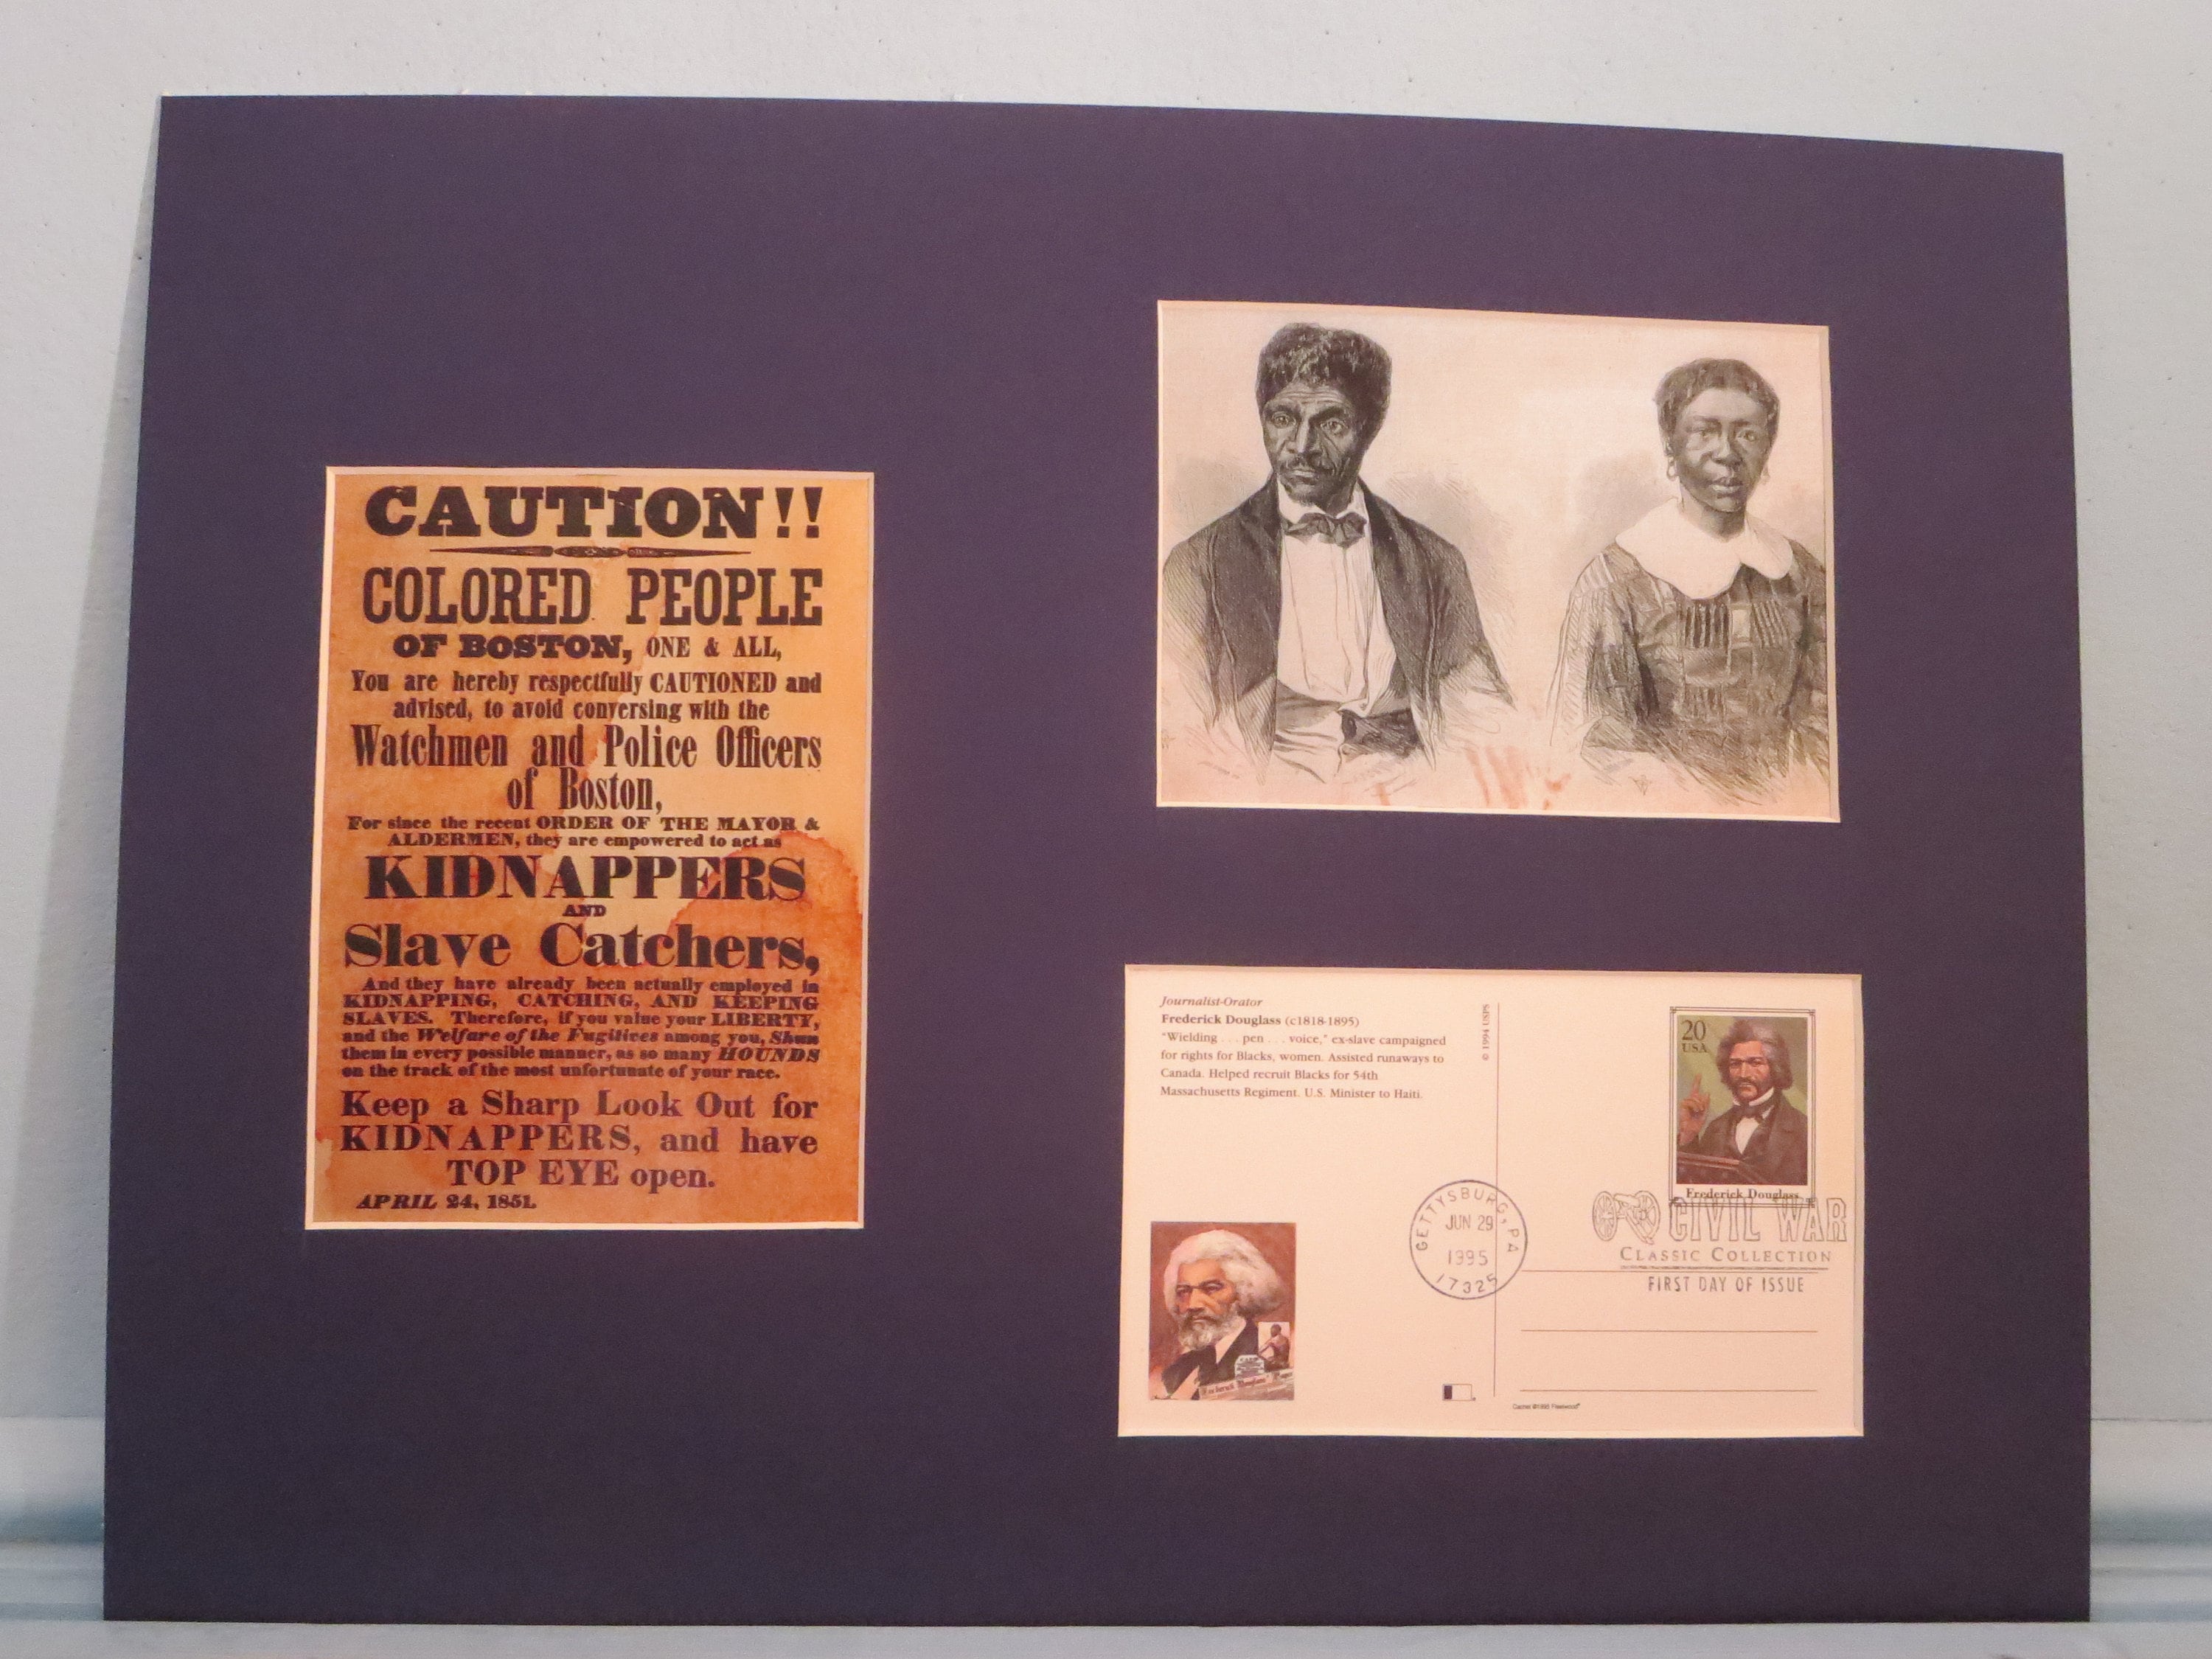 CAUTION!!
COLORED PEOPLE
OF BOSTON, ONE & ALL,
You are hereby respectfully CAUTIONED and
advised, to avoid conversing with the
Watchmen and Police Officers
of Boston,
For since the recent ORDER OF THE MAYOR &
ALDERMEN, they are empowered to act as
KIDNAPPERS
AND
Slave Catchers,
And they have already been actually employed in
KIDNAPPING, CATCHING, AND KEEPING
SLAVES. Therefore, if you value your LIBERTY,
and the Welfare of the Fugitives among you, Shun
them in every possible manner, as so many HOUNDS
on the track of the most unfortunate of your race.
Keep a Sharp Look Out for
KIDNAPPERS, and have
TOP EYE open.
APRIL 24, 1851.
Journalist-Orator
Frederick Douglass (c1818-1895)
"Wielding . . . pen . . . voice," ex-slave campaigned
for rights for Blacks, women. Assisted runaways to
Canada. Helped recruit Blacks for 54th
Massachusetts Regiment. U.S. Minister to Haiti.
© 1994 USPS
20
USA
Frederick Douglass
GETTYSBURG, PA
JUN 29
1995
17325
CIVIL WAR
CLASSIC COLLECTION
FIRST DAY OF ISSUE
Cachet ©1995 Fleetwood®